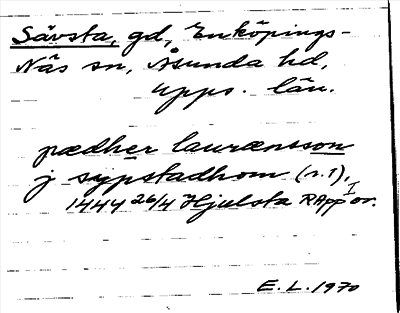 Sävsta, gd, Enköpings-
Näs sn, Åsunda hd,
Upps. län.
pædher laurænsson
j sypstadhom (r. 1),
1444 26/4 Hjulsta RApp I or.
E. L. 1970